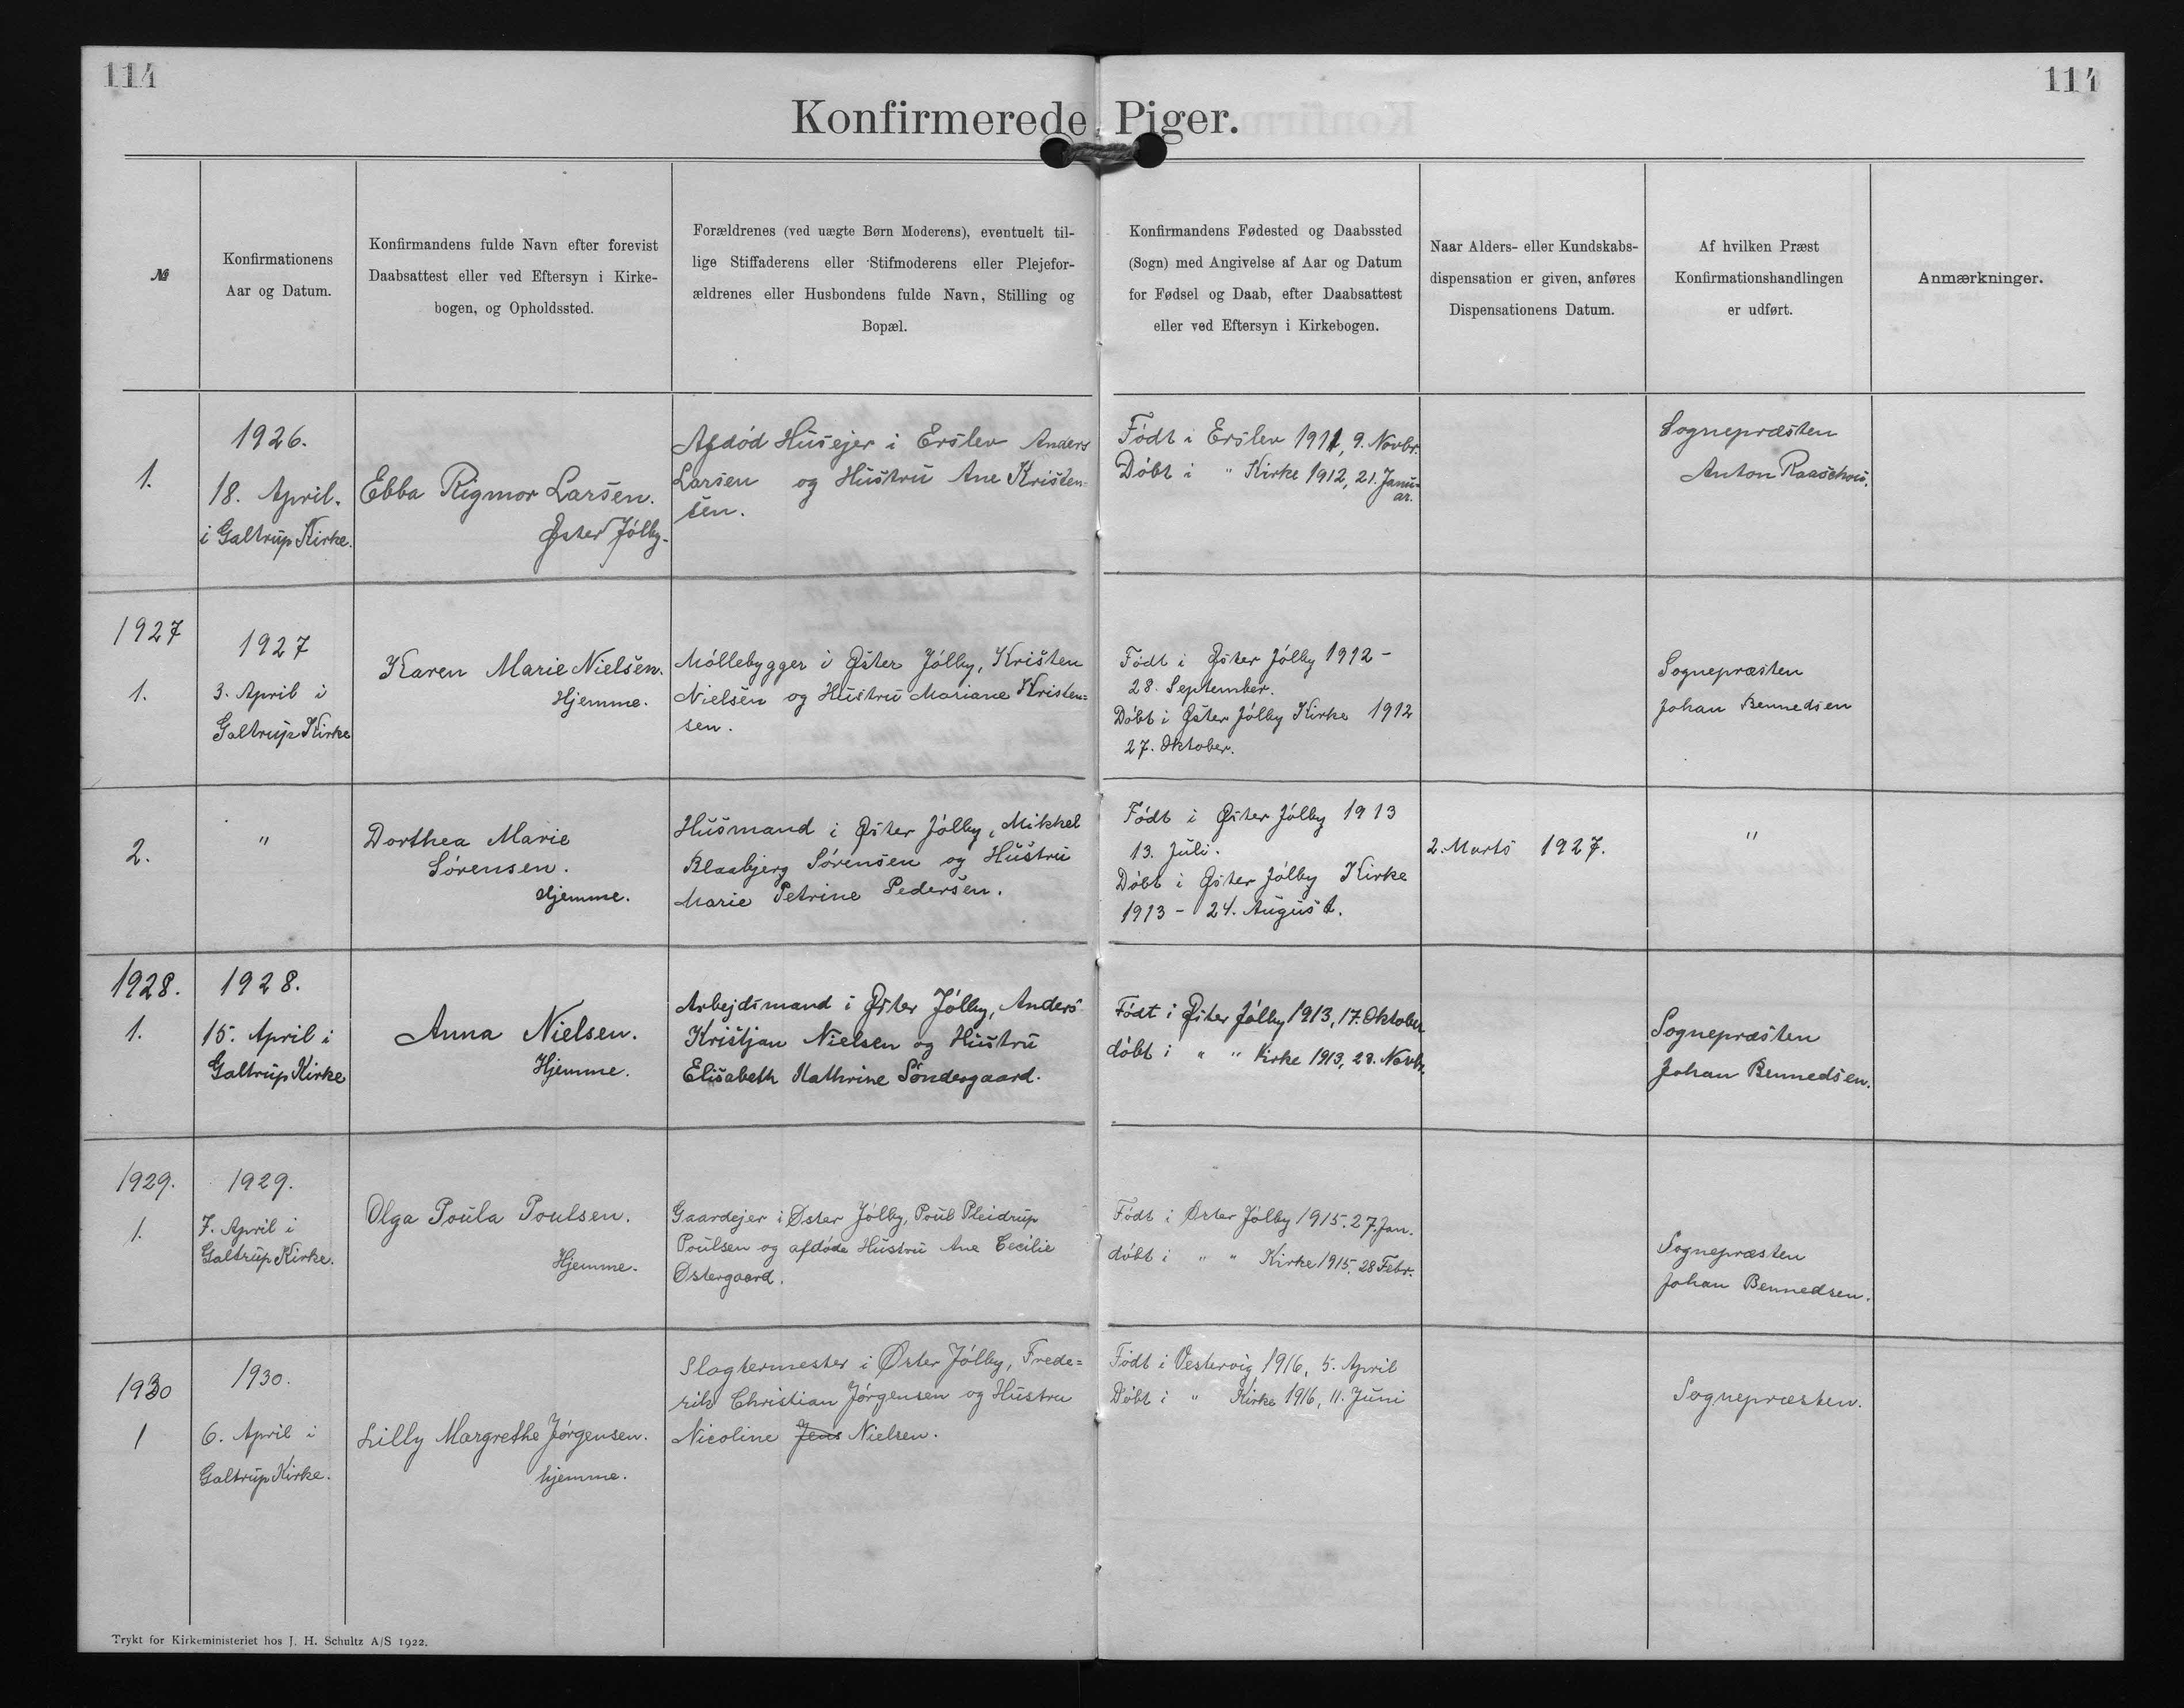 114
114
Konfirmerede Piger.
№
Konfirmationens
Aar og Datum.
Konfirmandens fulde Navn efter forevist
Daabsattest eller ved Eftersyn i Kirke-
bogen, og Opholdssted.
Forældrenes (ved uægte Børn Moderens), eventuelt til-
lige Stiffaderens eller Stifmoderens eller Plejefor-
ældrenes eller Husbondens fulde Navn, Stilling og
Bopæl.
Konfirmandens Fødested og Daabssted
(Sogn) med Angivelse af Aar og Datum
for Fødsel og Daab, efter Daabsattest
eller ved Eftersyn i Kirkebogen.
Naar Alders- eller Kundskabs-
dispensation er given, anføres
Dispensationens Datum.
Af hvilken Præst
Konfirmationshandlingen
er udført.
Anmærkninger.
1.
1926.
18. April.
i Galtrup Kirke.
Ebba Rigmor Larsen.
Øster Jølby.
Afdød Husejer i Erslev Anders
Larsen og Hustru Ane Kristen=
sen.
Født i Erslev 1911, 9. Novbr.
Døbt i " Kirke 1912, 21. Janu=
ar.
Sognepræsten
Anton Raaschou.
1927
1.
1927
3. April i
Galtrup Kirke
Karen Marie Nielsen.
Hjemme.
Møllebygger i Øster Jølby, Kristen
Nielsen og Hustru Mariane Kristen=
sen.
Født i Øster Jølby 1912 -
28. September.
Døbt i Øster Jølby Kirke 1912
27. Oktober.
Sognepræsten
Johan Bennedsen
2.
"
Dorthea Marie
Sørensen.
Hjemme.
Husmand i Øster Jølby, Mikkel
Blaabjerg Sørensen og Hustru
Marie Petrine Pedersen.
Født i Øster Jølby 1913
13. Juli.
Døbt i Øster Jølby Kirke
1913 - 24. August.
2. Marts 1927.
"
1928.
1.
1928.
15. April i
Galtrup Kirke
Anna Nielsen.
Hjemme.
Arbejdsmand i Øster Jølby, Anders
Kristjan Nielsen og Hustru
Elisabeth Kathrine Søndergaard.
Født i Øster Jølby 1913, 17. Oktober
døbt i " " Kirke 1913, 23. Novbr.
Sognepræsten
Johan Bennedsen.
1929.
1.
1929.
7. April i
Galtrup Kirke.
Olga Poula Poulsen.
Hjemme.
Gaardejer i Øster Jølby, Poul Pleidrup
Poulsen og afdøde Hustru Ane Cecilie
Østergaard.
Født i Øster Jølby 1915. 27. Jan.
døbt i " " Kirke 1915. 28 Febr.
Sognepræsten
Johan Bennedsen.
1930
1
1930.
6. April i
Galtrup Kirke.
Lilly Margrethe Jørgensen.
hjemme.
Slagtermester i Øster Jølby, Frede=
rik Christian Jørgensen og Hustru
Nicoline Jens Nielsen.
Født i Vestervig 1916, 5. April
Døbt i " Kirke 1916, 11. Juni
Sognepræsten.
Trykt for Kirkeministeriet hos J. H. Schultz A/S 1922.